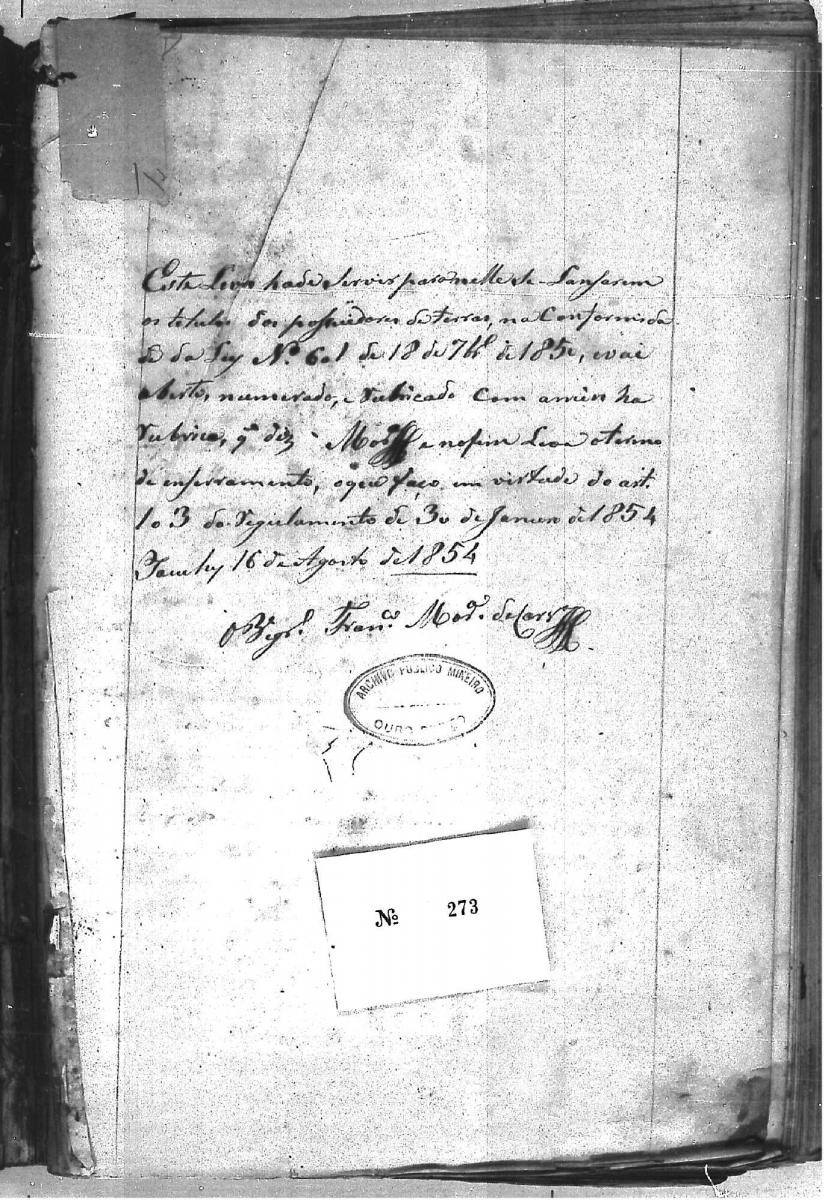 Este Livro hade Servir para nelle se Lansarem
os titulos dos possuidores de terras, na Conformida
de da Ley Nº 601 de 18 de 7bro de 1850, vai
aberto, numerado, e Rubricado Com a min ha
Rubrica, q diz Mor e no fim Leva o termo
de enserramento, o que faço em virtude do art.
103 do Regulamento de 30 de Janeiro de 1854
Jacuhy 16 de Agosto de 1854
O Vigr.º Franco
ARCHIVO PUBLICO MINEIRO
OURO PRETO
Nº 273